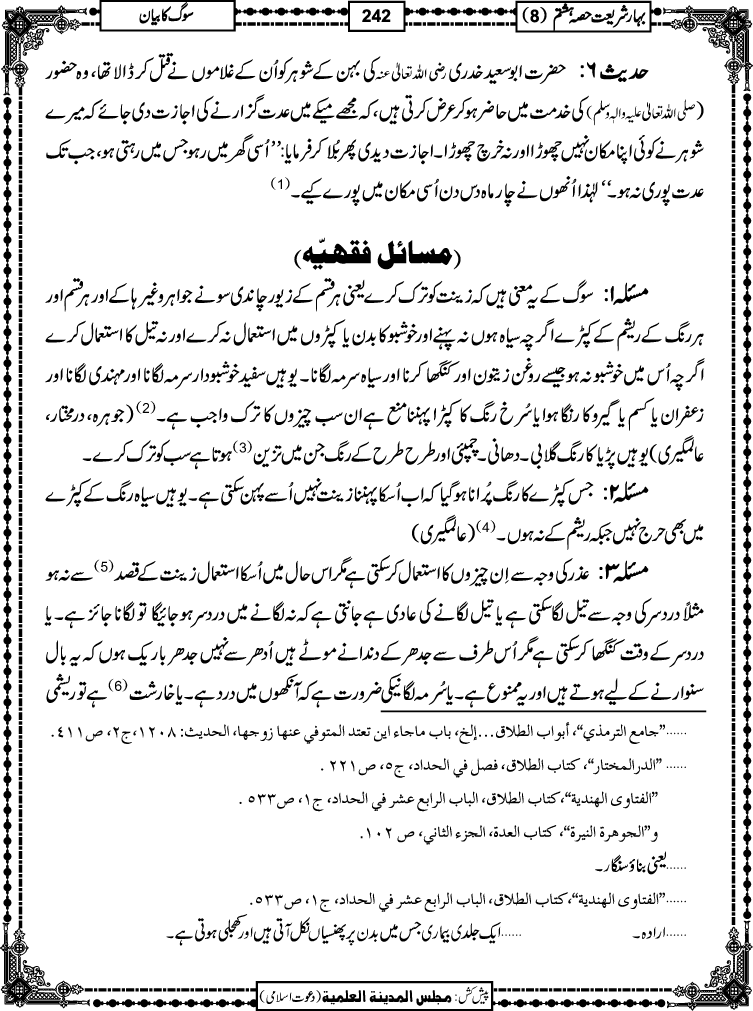 بہار شریعت حصہ ہشتم (8)
242
سوگ کا بیان
حدیث ۶: حضرت ابو سعید خدری رضی اللہ تعالیٰ عنہ کی بہن کے شوہر کو اُن کے غلاموں نے قتل کر ڈالا تھا، وہ حضور
(صلی اللہ تعالیٰ علیہ والہ وسلم) کی خدمت میں حاضر ہو کر عرض کرتی ہیں، کہ مجھے میکے میں عدت گزارنے کی اجازت دی جائے کہ میرے
شوہر نے کوئی اپنا مکان نہیں چھوڑا اور نہ خرچ چھوڑا۔ اجازت دیدی پھر بُلا کر فرمایا: ’’اُسی گھر میں رہو جس میں رہتی ہو، جب تک
عدت پوری نہ ہو۔‘‘ لہٰذا اُنھوں نے چار ماہ دس دن اُسی مکان میں پورے کیے۔ (1)
(مسائل فقهیّه)
مسئلہ ۱: سوگ کے یہ معنی ہیں کہ زینت کو ترک کرے یعنی ہر قسم کے زیور چاندی سونے جواہر وغیرہا کے اور ہر قسم اور
ہر رنگ کے ریشم کے کپڑے اگرچہ سیاہ ہوں نہ پہنے اور خوشبو کا بدن یا کپڑوں میں استعمال نہ کرے اور نہ تیل کا استعمال کرے
اگرچہ اُس میں خوشبو نہ ہو جیسے روغن زیتون اور کنگھا کرنا اور سیاہ سرمہ لگانا۔ یوہیں سفید خوشبودار سرمہ لگانا اور مہندی لگانا اور
زعفران یا کسم یا گیرو کا رنگا ہوا یا سُرخ رنگ کا کپڑا پہننا منع ہے ان سب چیزوں کا ترک واجب ہے۔ (2) (جوہرہ، درمختار،
عالمگیری) یوہیں پڑیا کا رنگ گلابی۔ دھانی۔ چمپئی اور طرح طرح کے رنگ جن میں تزین (3) ہوتا ہے سب کو ترک کرے۔
مسئلہ ۲: جس کپڑے کا رنگ پُرانا ہو گیا کہ اب اُسکا پہننا زینت نہیں اُسے پہن سکتی ہے۔ یوہیں سیاہ رنگ کے کپڑے
میں بھی حرج نہیں جبکہ ریشم کے نہ ہوں۔ (4) (عالمگیری)
مسئلہ ۳: عذر کی وجہ سے اِن چیزوں کا استعمال کر سکتی ہے مگر اس حال میں اُسکا استعمال زینت کے قصد (5) سے نہ ہو
مثلاً دردِسر کی وجہ سے تیل لگا سکتی ہے یا تیل لگانے کی عادی ہے جانتی ہے کہ نہ لگانے میں دردِسر ہو جائیگا تو لگانا جائز ہے۔ یا
دردِسر کے وقت کنگھا کر سکتی ہے مگر اُس طرف سے جدھر کے دندانے موٹے ہیں اُدھر سے نہیں جدھر باریک ہوں کہ یہ بال
سنوارنے کے لیے ہوتے ہیں اور یہ ممنوع ہے۔ یا سُرمہ لگانیکی ضرورت ہے کہ آنکھوں میں درد ہے۔ یا خارشت (6) ہے تو ریشمی
......”جامع الترمذي“، أبواب الطلاق...إلخ، باب ماجاء این تعتد المتوفي عنها زوجها، الحدیث: ۱۲۰۸،ج۲، ص۴۱۱.
...... ”الدرالمختار“، کتاب الطلاق، فصل في الحداد، ج۵، ص۲۲۱ .
”الفتاوی الهندیة“،کتاب الطلاق، الباب الرابع عشر في الحداد، ج۱، ص۵۳۳ .
و”الجوهرة النیرة“، کتاب العدة، الجزء الثاني، ص ۱۰۲.
......یعنی بناؤ سنگار۔
......”الفتاوی الهندیة“،کتاب الطلاق، الباب الرابع عشر في الحداد، ج۱، ص۵۳۳.
......ارادہ۔ ......ایک جلدی بیماری جس میں بدن پر پھنسیاں نکل آتی ہیں اور کھجلی ہوتی ہے۔
پیش کش: مجلس المدینة العلمیة (دعوت اسلامی)